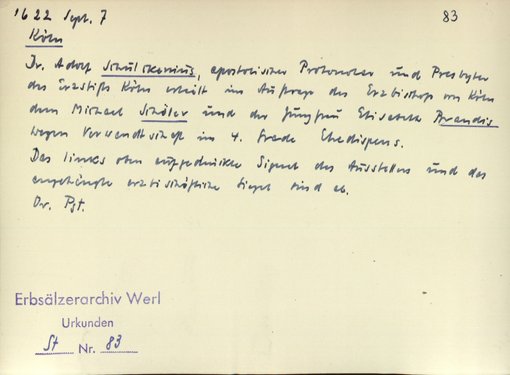 1622 Sept. 7
83
Köln
Dr. Adolf Schulckenius, apostolischer Protonotar und Presbyter
des Erzstifts Köln erteilt im Auftrage des Erzbischofs von Köln
dem Michael Schöler und der Jungfrau Elisabeth Brandis
wegen Verwandtschaft im 4. Grade Ehedispens.
Das links oben aufgedrückte Signet des Ausstellers und das
angehängte erzbischöfliche Siegel sind ab.
Or. Pgt.
Erbsälzerarchiv Werl
Urkunden
St Nr. 83